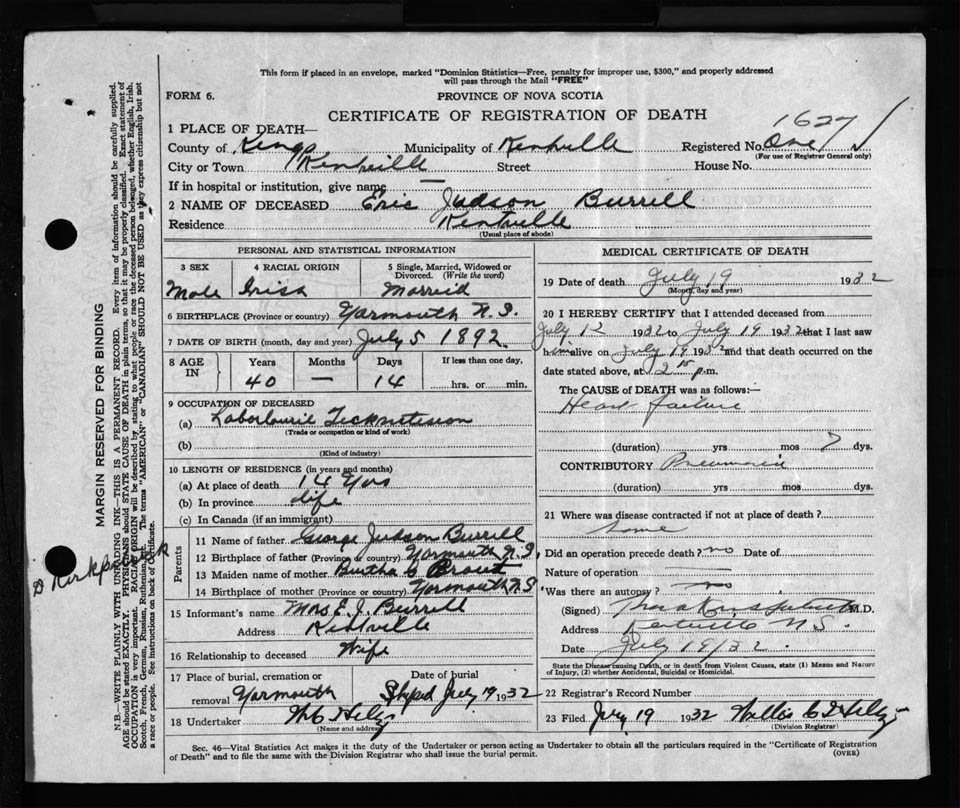 This form if placed in an envelope, marked "Dominion Statistics—Free, penalty for improper use, $300," and properly addressed
will pass through the Mail "FREE"
FORM 6.
PROVINCE OF NOVA SCOTIA
CERTIFICATE OF REGISTRATION OF DEATH
1627
1 PLACE OF DEATH—
County of Kings Municipality of Kentville Registered No. One
(For use of Registrar General only)
City or Town Kentville Street House No.
If in hospital or institution, give name —
2 NAME OF DECEASED Eric Judson Burrill
Residence Kentville
(Usual place of abode)
PERSONAL AND STATISTICAL INFORMATION
3 SEX 4 RACIAL ORIGIN 5 Single, Married, Widowed or
Divorced. (Write the word)
Male Irish Married
6 BIRTHPLACE (Province or country) Yarmouth N.S.
7 DATE OF BIRTH (month, day and year) July 5 1892
8 AGE IN Years Months Days If less than one day,
40 — 14 hrs. or min.
9 OCCUPATION OF DECEASED
(a)
(Trade or occupation or kind of work)
(b)
(Kind of industry)
10 LENGTH OF RESIDENCE (in years and months)
(a) At place of death 14 Yrs
(b) In province Life
(c) In Canada (if an immigrant)
Parents
11 Name of father George Judson Burrill
12 Birthplace of father (Province or country) Yarmouth N.S.
13 Maiden name of mother Burtha
14 Birthplace of mother (Province or country) Yarmouth N.S
15 Informant's name Mrs E. J. Burrill
Address Kentville
16 Relationship to deceased Wife
17 Place of burial, cremation or Date of burial
removal Yarmouth Shiped July 19 1932
18 Undertaker
(Name and address)
MEDICAL CERTIFICATE OF DEATH
19 Date of death July 19 1932
(Month, day and year)
20 I HEREBY CERTIFY that I attended deceased from
July 12 1932 to July 19 1932 that I last saw
him alive on July 19 1932 and that death occurred on the
date stated above, at 2 15 p.m.
The CAUSE of DEATH was as follows:—
Heart failure
(duration) yrs mos 7 dys.
CONTRIBUTORY Pneumonia
(duration) yrs. mos. dys.
21 Where was disease contracted if not at place of death?
Did an operation precede death? no Date of
Nature of operation —
Was there an autopsy? no
(Signed) M.D.
Address Kentville N.S.
Date July 19/32
State the Disease causing Death, or in death from Violent Causes, state (1) Means and Nature
of Injury, (2) whether Accidental, Suicidal or Homicidal.
22 Registrar's Record Number
23 Filed July 19 1932
(Division Registrar)
Sec. 46—Vital Statistics Act makes it the duty of the Undertaker or person acting as Undertaker to obtain all the particulars required in the "Certificate of Registration
of Death" and to file the same with the Division Registrar who shall issue the burial permit.
(OVER)
MARGIN RESERVED FOR BINDING
N.B.—WRITE PLAINLY WITH UNFADING INK—THIS IS A PERMANENT RECORD. Every item of information should be carefully supplied.
AGE should be stated EXACTLY. PHYSICIANS should STATE CAUSE OF DEATH in plain terms, so that it may be properly classified. Exact statement of
OCCUPATION is very important. RACIAL ORIGIN will be described by stating to what people or race the deceased person belonged, whether English, Irish,
Scotch, French, German, Russian, Ruthenian, etc. The terms "AMERICAN" or "CANADIAN" SHOULD NOT BE USED as they express citizenship but not
a race or people. See instructions on back of Certificate.